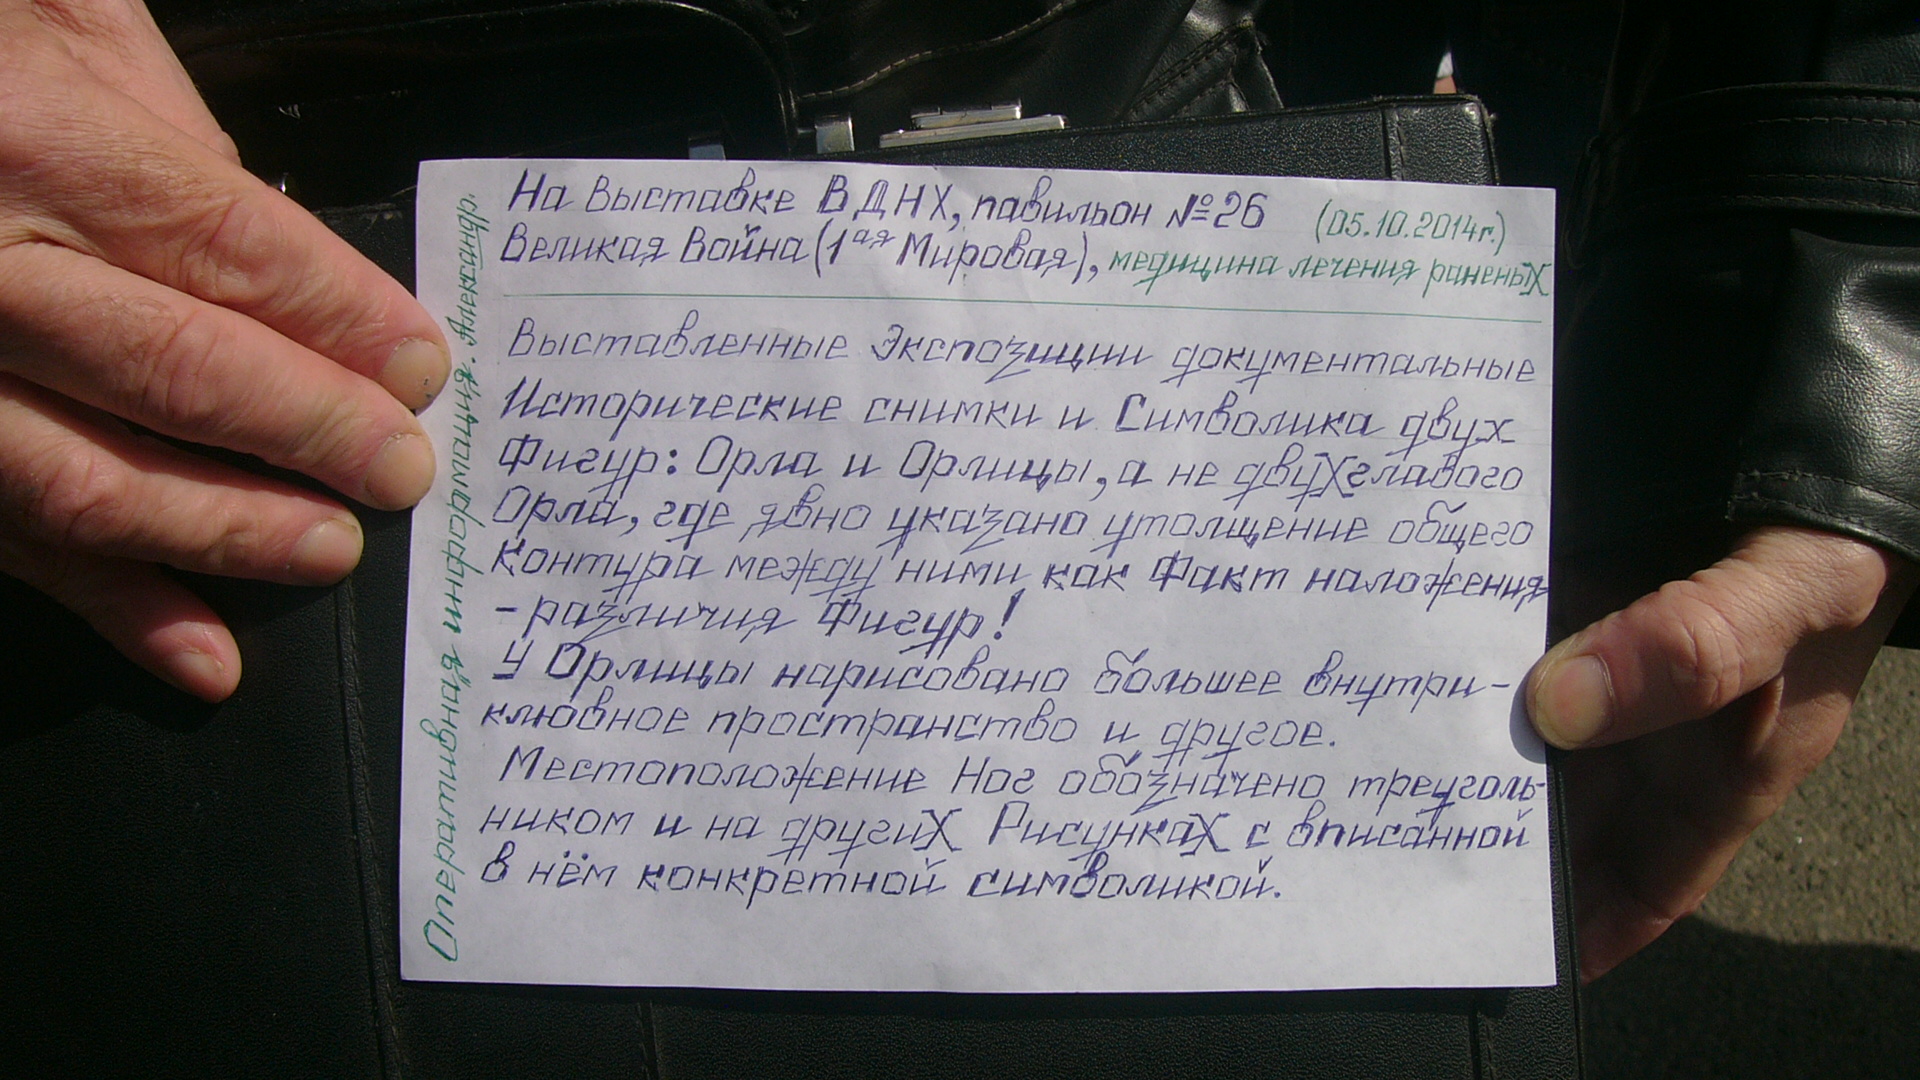 На Выставке ВДНХ, павильон №26 (05.10.2014г.)
Великая Война (1ая Мировая), медицина лечения раненых
Выставленные Экспозиции документальные
Исторические снимки и Символика двух
Фигур: Орла и Орлицы, а не двухглавого
Орла, где явно указано утолщение общего
контура между ними как Факт наложения
-различия Фигур!
У Орлицы нарисовано большее внутри-
клювное пространство и другое.
Местоположение Ног обозначено треуголь-
ником и на других Рисунках с вписанной
в нём конкретной символикой.
Оперативная информация. Александр.